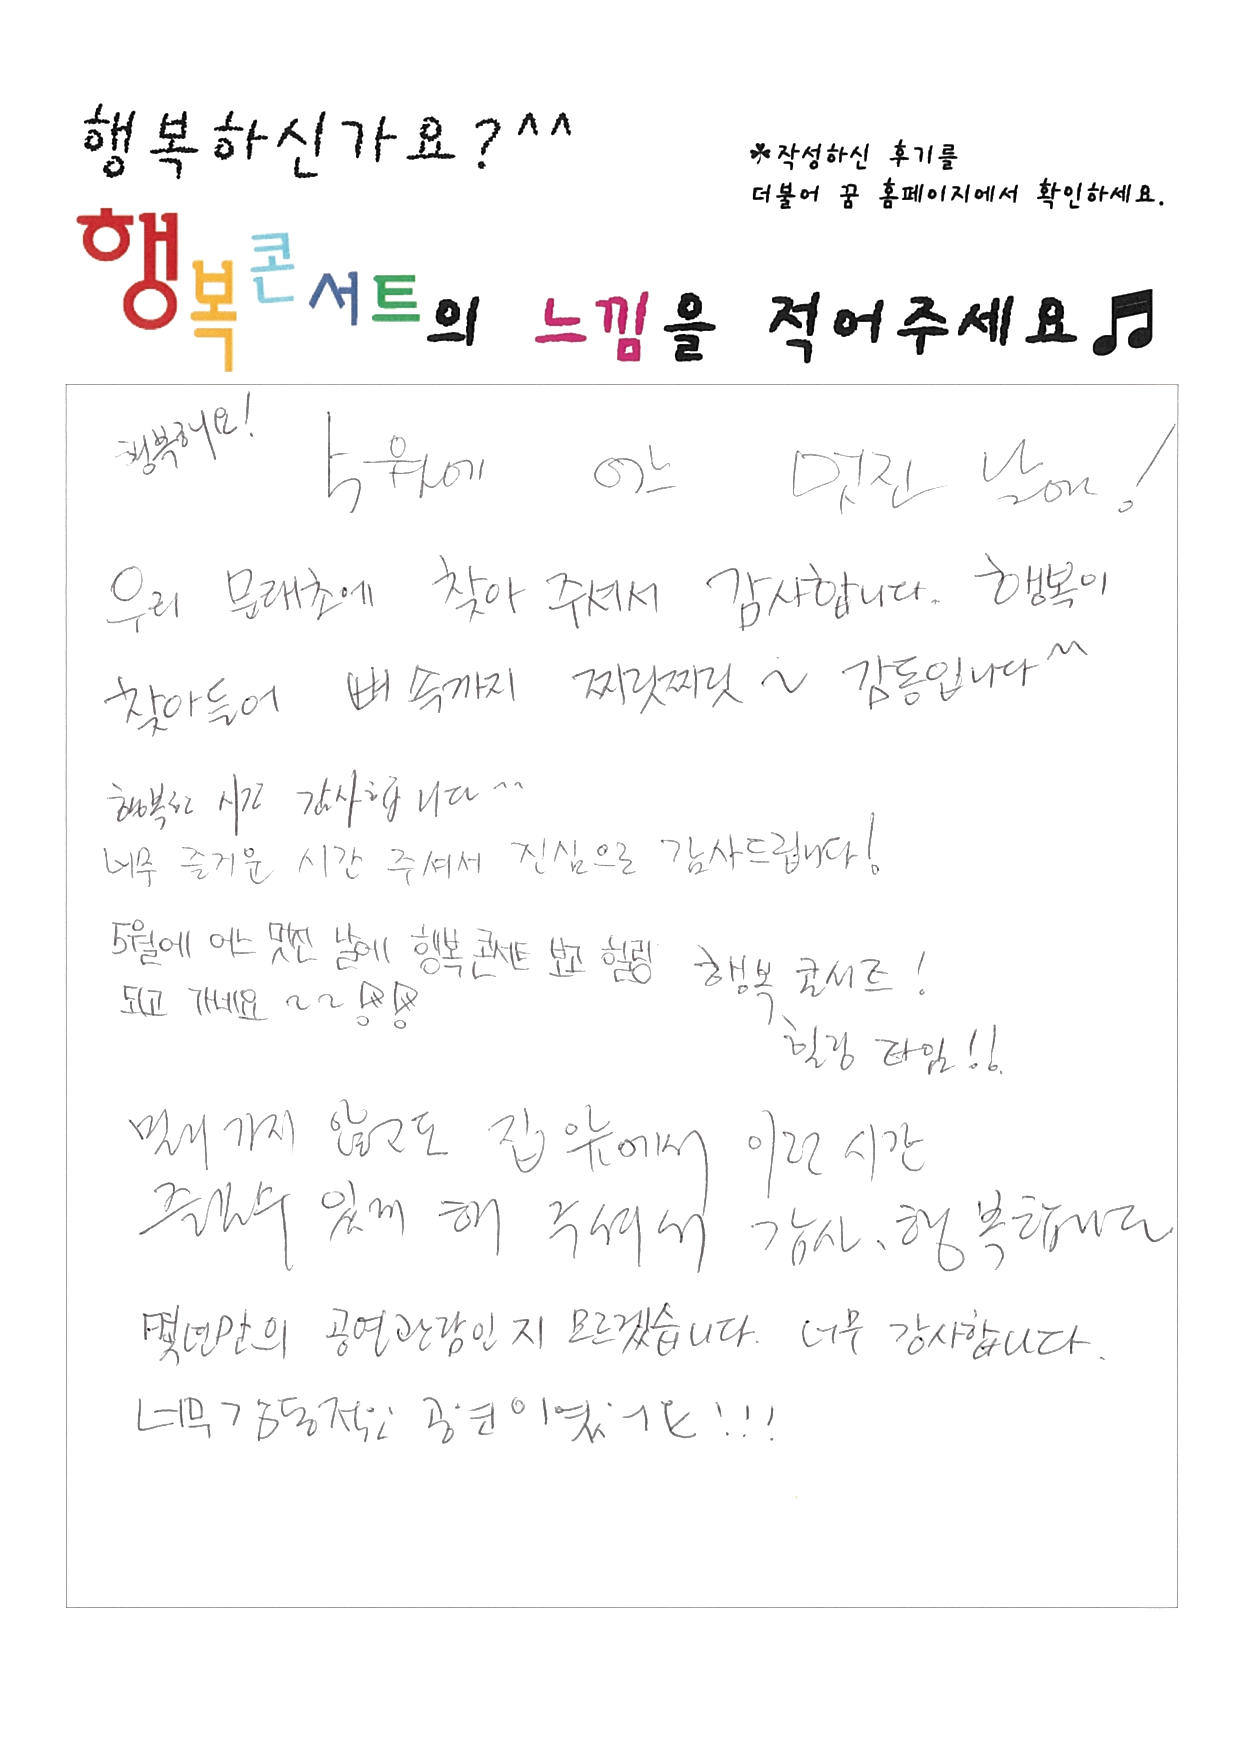 행복하신가요?^^
*작성하신 후기를
더불어 꿈 홈페이지에서 확인하세요.
행복콘서트의 느낌을 적어주세요♫
행복해요!
5월에 어느 멋진 날에!
우리 문래초에 찾아 주셔서 감사합니다. 행복이
찾아들어 뼈 속까지 찌릿찌릿~ 감동입니다^^
행복한 시간 감사합니다^^
너무 즐거운 시간 주셔서 진심으로 감사드립니다!
5월에 어느 멋진 날에 행복 콘서트 보고 힐링
되고 가네요~~
행복 콘서트!
힐링 타임!!
멀리 가지 않고도 집 앞에서 이런 시간
즐길수 있게 해 주셔서 감사, 행복합니다
몇년만의 공연관람인지 모르겠습니다. 너무 감사합니다.
너무 감동적인 공연이였어요!!!